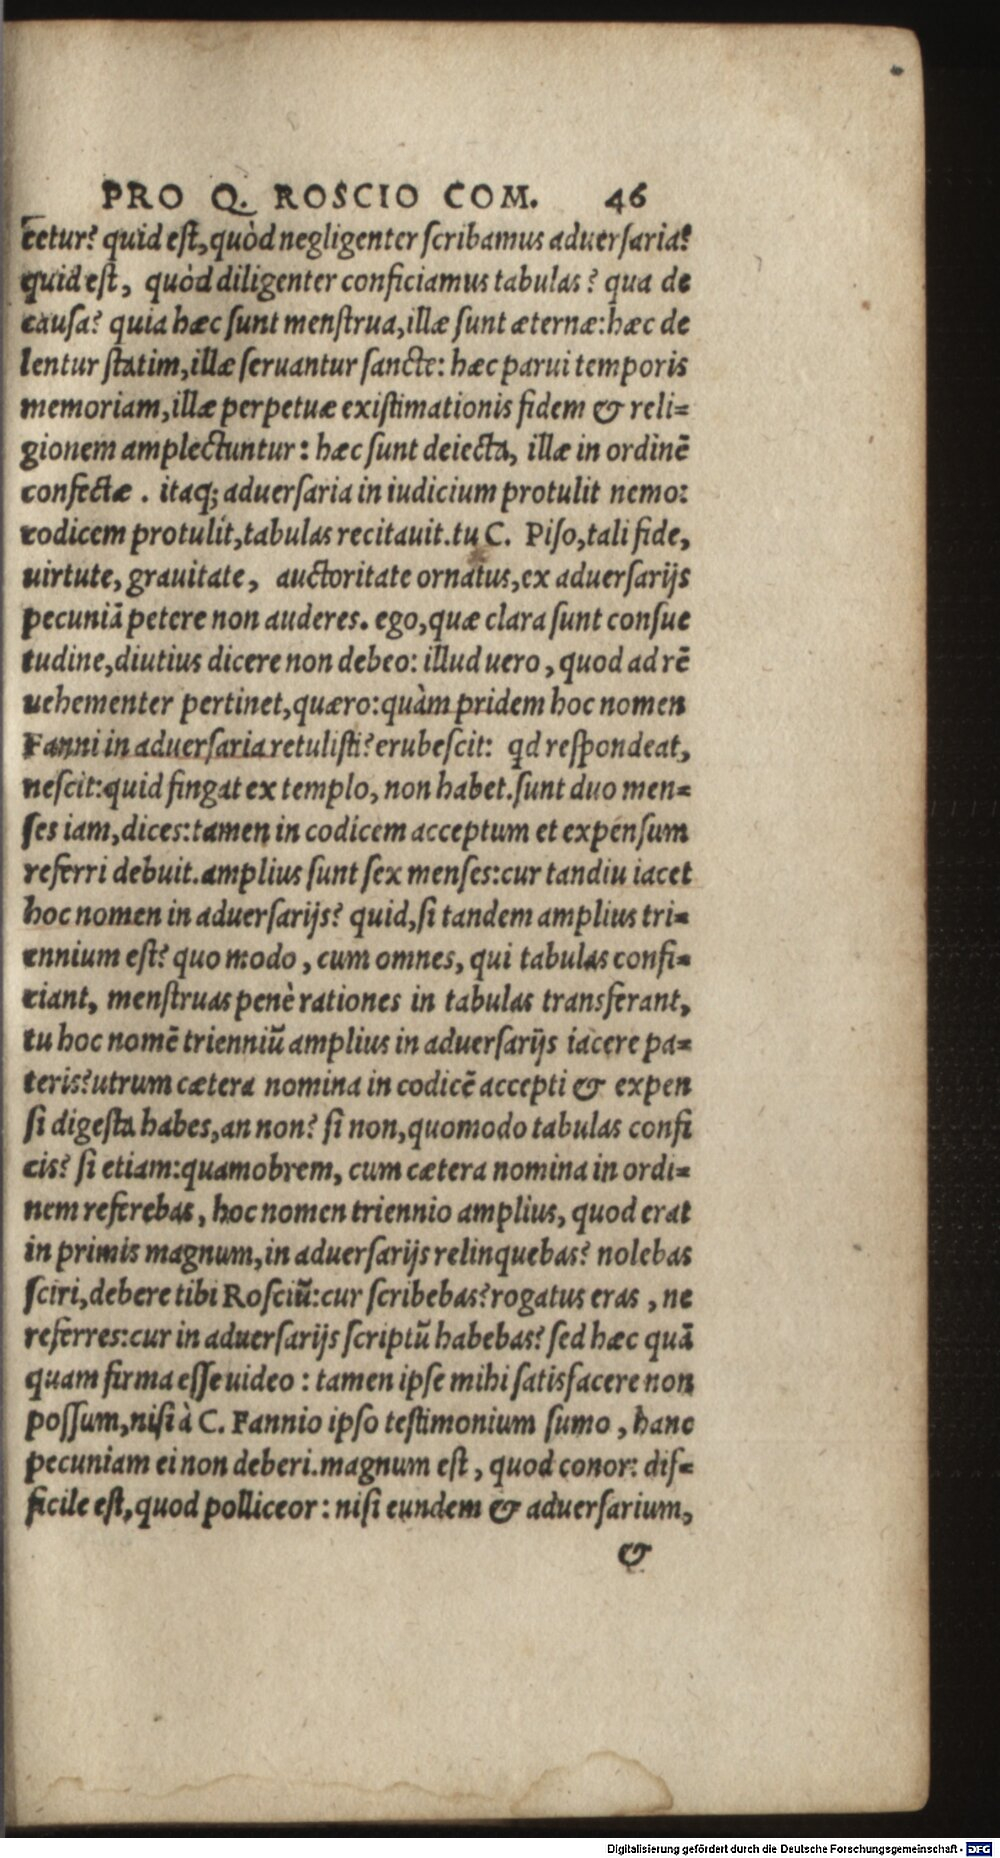 PRO Q. ROSCIO COM. 46
cetur? quid est, quòd negligenter scribamus aduersaria?
quid est, quòd diligenter conficiamus tabulas? qua de
causa? quia hæc sunt menstrua, illæ sunt æternæ: hæc de
lentur statim, illæ seruantur sancte: hæc parui temporis
memoriam, illæ perpetuæ existimationis fidem & reli=
gionem amplectuntur: hæc sunt deiecta, illæ in ordinē
confectæ. itaq; aduersaria in iudicium protulit nemo:
codicem protulit, tabulas recitauit. tu C. Piso, tali fide,
uirtute, grauitate, auctoritate ornatus, ex aduersarijs
pecuniā petere non auderes. ego, quæ clara sunt consue
tudine, diutius dicere non debeo: illud uero, quod ad rē
uehementer pertinet, quæro: quàm pridem hoc nomen
Fanni in aduersaria retulisti? erubescit: qd respondeat,
nescit: quid fingat ex templo, non habet. sunt duo men=
ses iam, dices: tamen in codicem acceptum et expensum
referri debuit. amplius sunt sex menses: cur tandiu iacet
hoc nomen in aduersarijs? quid, si tandem amplius tri=
ennium est? quo modo, cum omnes, qui tabulas confi=
ciant, menstruas penè rationes in tabulas transferant,
tu hoc nomē trienniū amplius in aduersarijs iacere pa=
teris? utrum cætera nomina in codicē accepti & expen
si digesta habes, an non? si non, quomodo tabulas confi
cis? si etiam: quamobrem, cum cætera nomina in ordi=
nem referebas, hoc nomen triennio amplius, quod erat
in primis magnum, in aduersarijs relinquebas? nolebas
sciri, debere tibi Rosciū: cur scribebas? rogatus eras, ne
referres: cur in aduersarijs scriptū habebas? sed hæc quā
quam firma esse uideo: tamen ipse mihi satisfacere non
possum, nisi à C. Fannio ipso testimonium sumo, hanc
pecuniam ei non deberi. magnum est, quod conor: dif=
ficile est, quod polliceor: nisi eundem & aduersarium,
&
Digitalisierung gefördert durch die Deutsche Forschungsgemeinschaft - DFG